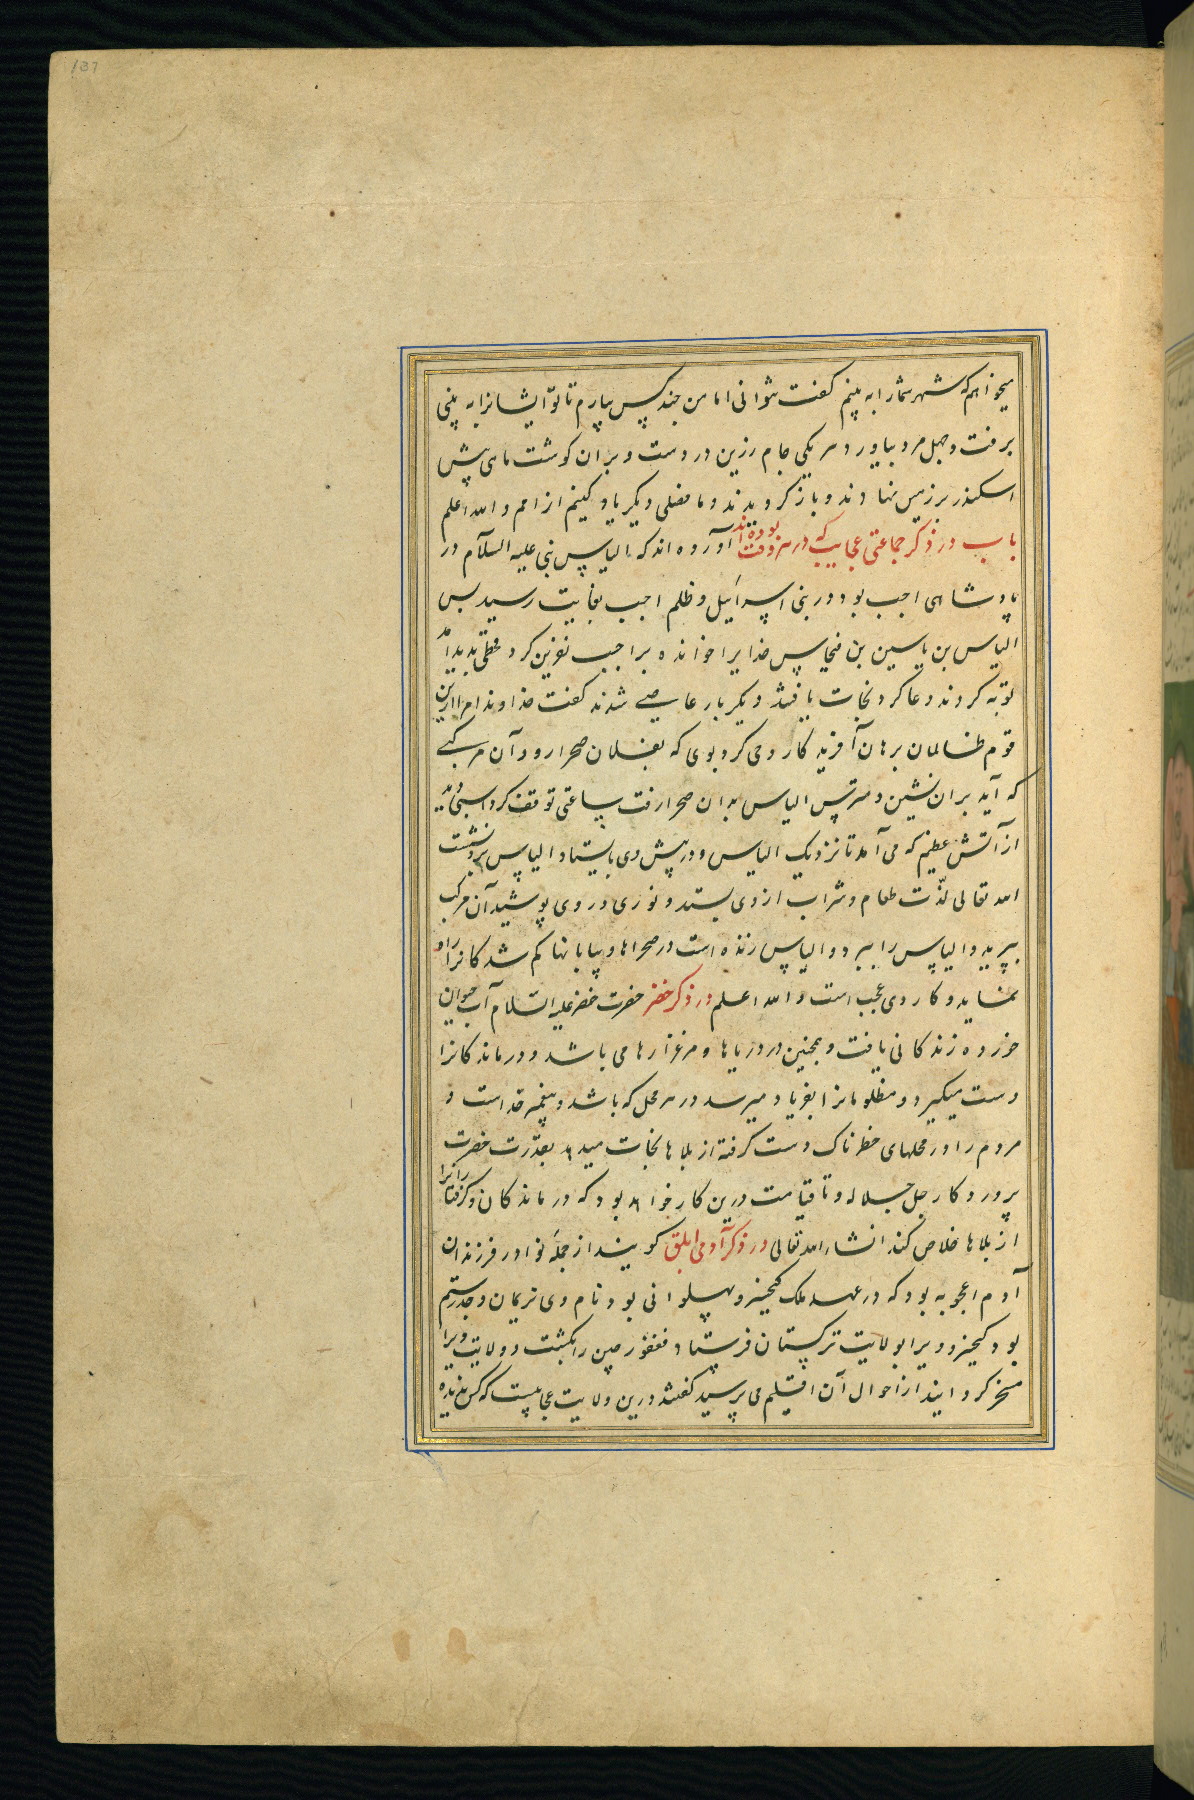 137
میخواهم که شهر شمارا به بینم کفت نتوانی اما من چند کس بیارم تا تو ایشانرا به بینی
برفت و چهل مرد بیاورد هر یکی جام زرین در دست و بران کوشت ماهی پیش
اسکندر بر زمین نهادند و باز کردیدند و ما فصلی دیکر یاد کنیم از امم و الله اعلم
باب در ذکر جماعتی عجایب که در هر وقت بوده اند آورده اند که الیاس نبی علیه السلام در
پادشاهی اجب بود در بنی اسرائیل و ظلم اجب بغایت رسید پس
الیاس بن یاسین بن فنحاس خدایرا خوانده بر اجب نفرین کرد قحطی پدید آمد
توبه کردند دعا کرد نجات یافتند دیکر بار عاصی شدند کفت خداوندا مرا ازین
قوم ظالمان برهان آفریدکار وحی کرد بوی که بفلان صحرا رود آن مرکبی
که آید بران نشین و مترس الیاس بدان صحرا رفت ساعتی توقف کرد اسبی دید
از آتش عظیم که می آمد تا نزدیک الیاس و در پیش وی بایستاد الیاس برو نشست
الله تعالی لذت طعام و شراب از وی بستد و نوری در وی پوشید آن مرکب
بپرید و الیاس را ببرد و الیاس زنده است در صحراها و بیابانها کم شدکانرا راه
نماید و کار وی عجب است و الله اعلم در ذکر خضر حضرت خضر علیه السلام آب حیوان
خورده زندکانی یافت و همچنین در دریاها و مرغزارها می باشد و درماندکانرا
دست میکیرد و مظلومانرا بفریاد میرسد در هر محل که باشد و پیغمبر خداست و
مردم را در محلهای خطرناک دست کرفته از بلاها نجات میدهد بقدرت حضرت
پروردکار جل جلاله و تا قیامت درین کار خواهد بود که درماندکان و کرفتارانرا
از بلاها خلاص کند انشاء الله تعالی در ذکر آدمی ابلق کویند از جمله نوادر فرزندان
آدم اعجوبه بود که در عهد ملک کیخسرو پهلوانی بود نام وی نریمان و جد رستم
بود کیخسرو ویرا بولایت ترکستان فرستاد فغفور چین را بکشت و ولایت ویرا
مسخر کردانید از احوال آن اقلیم می پرسید کفتند درین ولایت عجایبست که کس ندیده